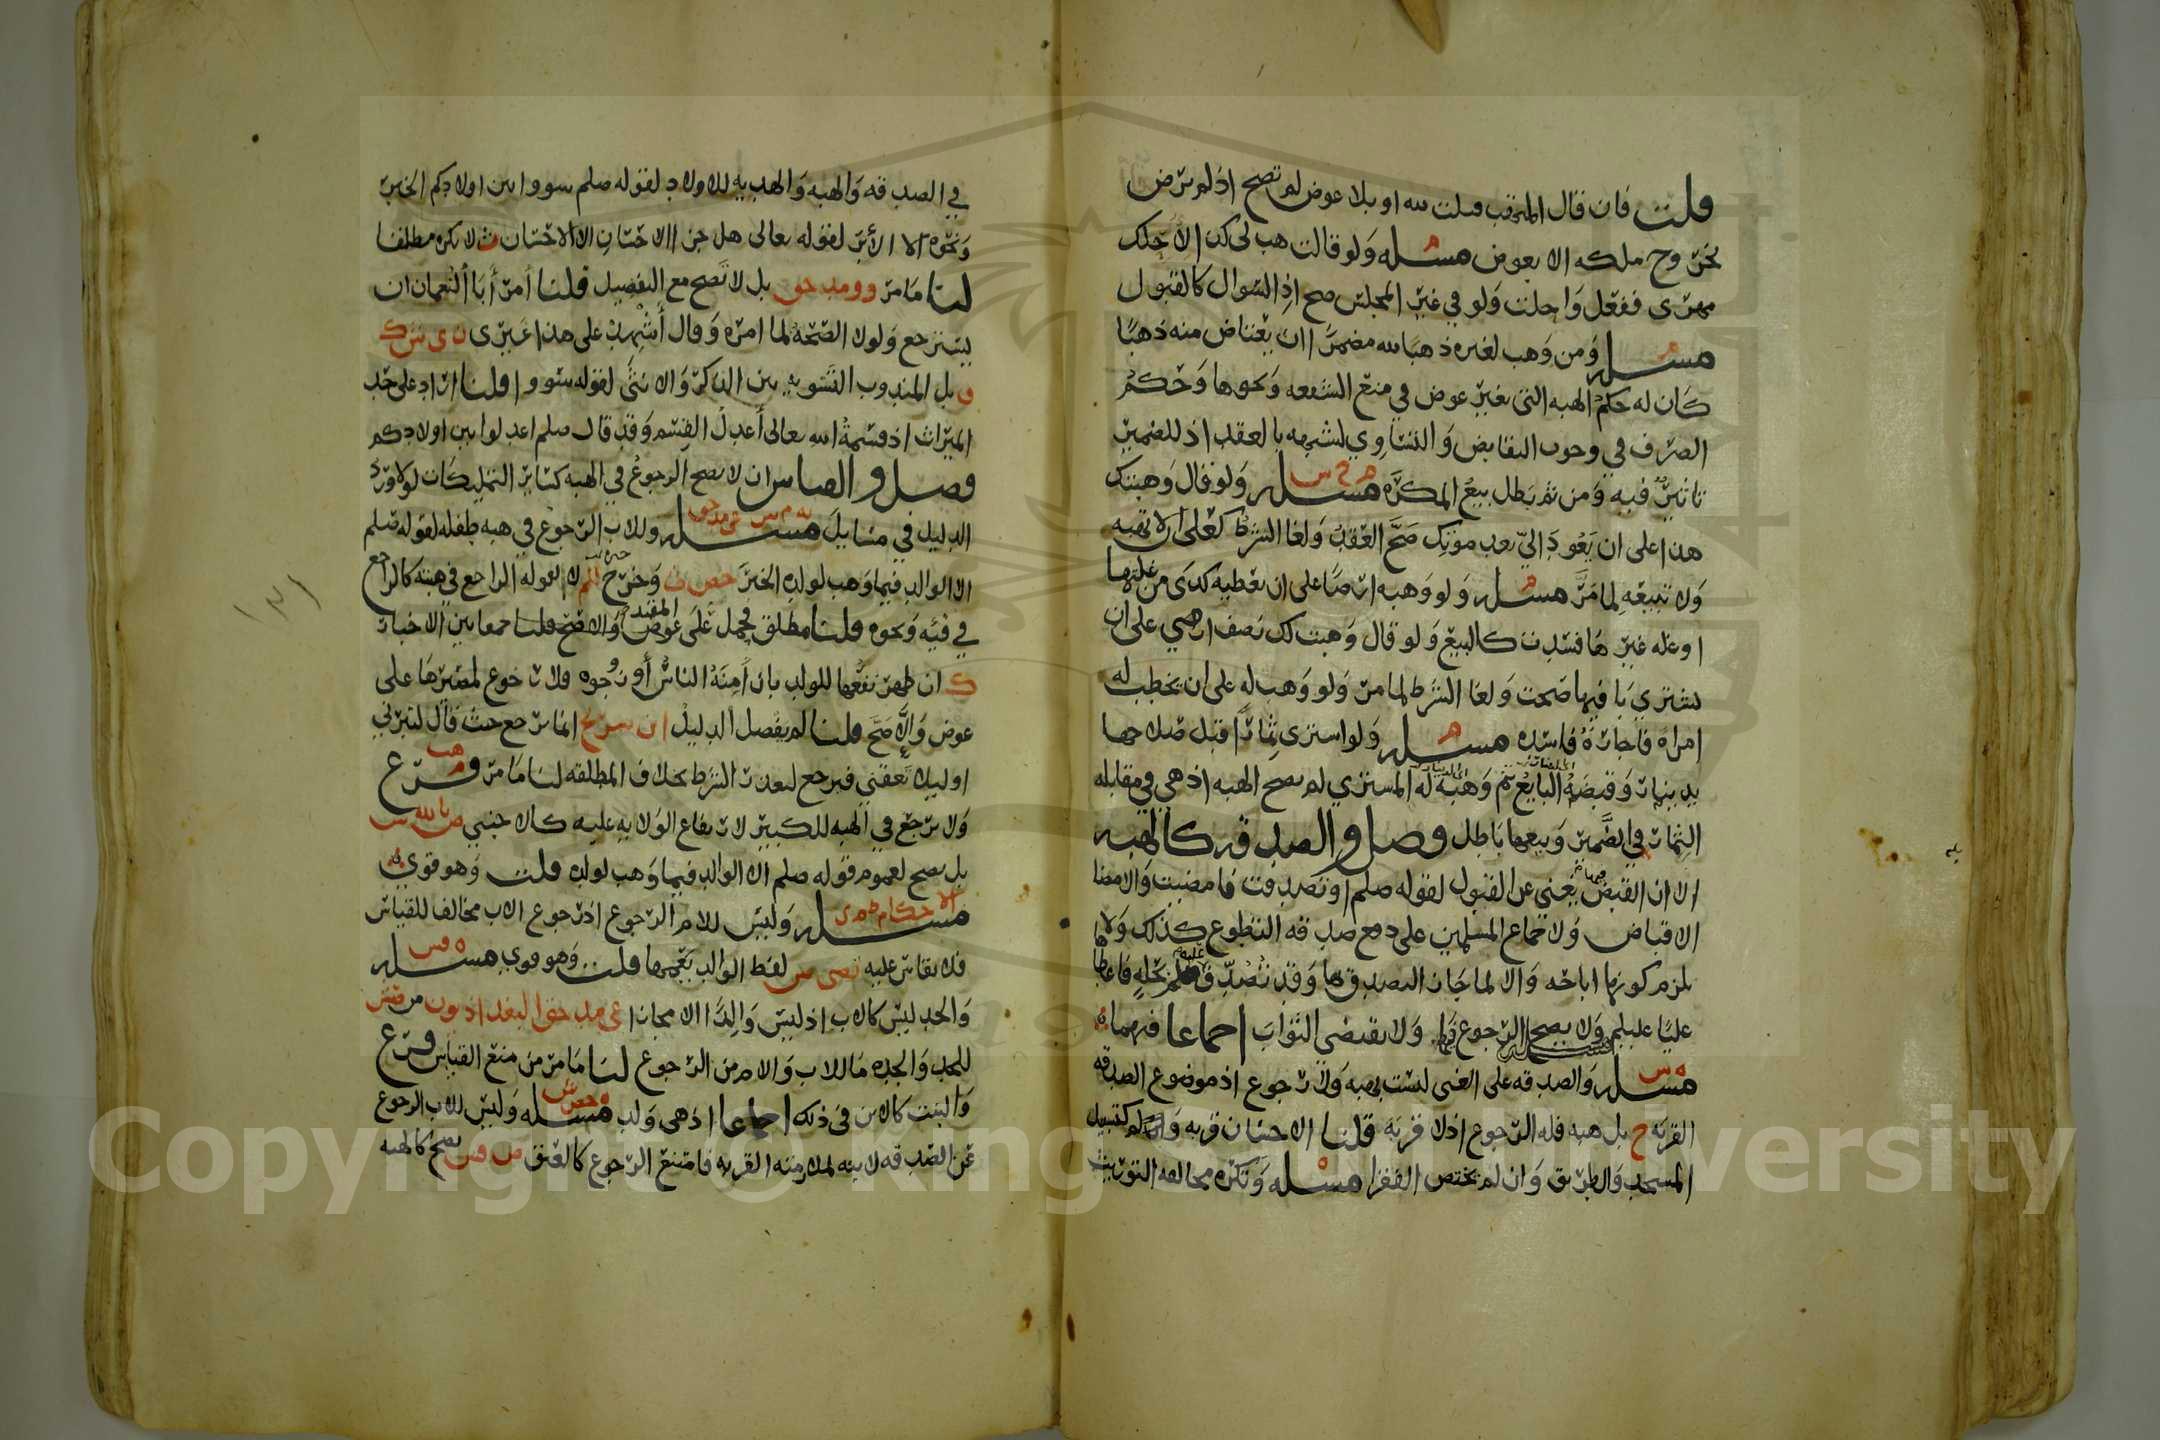 قلت فان قال المتهب قبلت لله او بلا عوض لم تصح اذ لم يرض
بخروج ملكه الا بعوض مسئله ولو قالت هب لي كذا لاحلك
مهري ففعل واحلت ولو في غير المجلس صح اذ السوال كالقبول
مسئله ومن وهب لغيره ذهبا لله مضمرا ان يعتاض منه ذهبا
كان له حكم الهبه التي بغير عوض في منع الشفعه ونحوها وحكم
الصرف في وجوب التقابض والتساوي لشبهه بالعقد اذ للضمير
تاثير فيه ومن ثم بطل بيع المكره مسئله ولو قال وهبتك
هذا على ان يعود الي بعد موتك صح العقد ولغا الشرط كعلى ان لا تهبه
ولا تبيعه لما مر مسئله ولو وهبه ارضا على ان يعطيه كذى من غلتها
او غله غيرها فسدت كالبيع ولو قال وهبت لك نصف ارضي على ان
تشتري با فيها صحت ولغا الشرط لما مر ولو وهب له على ان يخطب له
امراه فاجاره فاسده مسئله ولو اشترى ثمارا قبل صلاحها
بدينار وقبضه البايع ثم وهبه له المشتري لم يصح الهبه اذ هي في مقابله
الثمار في الضمير وبيعها باطل فصل والصدقه كالهبه
الا ان القبض فيها يغني عن القبول لقوله صلم او تصدقت فامضيت والامضا
الاقباض ولاجماع المسلمين على دفع صدقه التطوع كذلك ولا
يلزم كونها اباحه والا لما جاز التصدق بها وقد تصدق
عليا عليلم ولا يصح الرجوع فيها ولا يقتضي الثواب اجماعا فيهما
مسئله والصدقه على الغني ليست بهبه ولا رجوع اذ موضوع الصدقه
القربه ح بل هبه فله الرجوع اذ لا قربه قلنا الاحسان قربه كتسبيل
المسجد والطريق وان لم يختص الفقرا مسئله وتكره مخالفه التوريث
في الصدقه والهبه والهديه للاولاد لقوله صلم سووا بين اولادكم الخبر
ونحوه الا الابر لقوله تعالى هل جزا الاحسان الا الاحسان ث لا يكره مطلقا
لنا ما مر وو مد حق بل لا تصح مع التفضيل قلنا امر أبا النعمان ان
يسترجع ولولا الصحه لما امره وقال أشهد على هذا غيري ن ى ش ك
ف بل المندوب التسويه بين الذكر والانثى لقوله سووا قلنا اراد على حد
الميراث اذ قسمة الله تعالى أعدل القسم وقد قال صلم اعدلوا بين اولادكم
فصل والقياس ان لا يصح الرجوع في الهبه كساير التمليكات لولا ورد
الدليل في مسايل مسئله وللاب الرجوع في هبه طفله لقوله صلم
الا الوالد فيما وهب لولده الخبر حص ن وخرج للم لا لقوله الراجع في هبته كالراجع
في قيئه ونحوه قلنا مطلق محمل على عوض والا صح قلنا جمعا بين الاخبار
ك ان ظهر نفعها للولد بان أمنه الناس أو زوجوه فلا رجوع لمصيرها على
عوض والا صح قلنا لم يفصل الدليل ان سريج انما يرجع حيث قال لتبرني
او ليلا تعقني فيرجع لتعذر الشرط بخلاف المطلقه لنا ما مر فرع
ولا يرجع في الهبه للكبير لارتفاع الولايه عليه كالاجنبي ص بالله س
بل يصح لعموم قوله صلم الا الوالد فيما وهب لولده قلت وهو قوي
مسئله وليس للام الرجوع اذ رجوع الاب مخالف للقياس
فلا يقاس عليه لفظ الوالد يعمها قلت وهو قوي مسئله
والجد ليس كالاب اذ ليس والدا الا مجازا
للجد والجده ما للاب والام من الرجوع لنا ما مر من منع القياس فرع
والبنت كالابن في ذلك اجماعا اذ هي ولد مسئله وليس للاب الرجوع
عن الصدقه لابنه لملازمته القربه فامتنع الرجوع كالعتق يصح كالهبه
Copyright © King Saud University